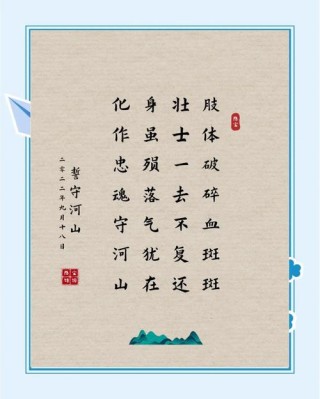 肢体破碎血斑斑
壮士一去不复还
身虽殒落气犹在
化作忠魂守河山
誓守河山
二零二二年九月十八日